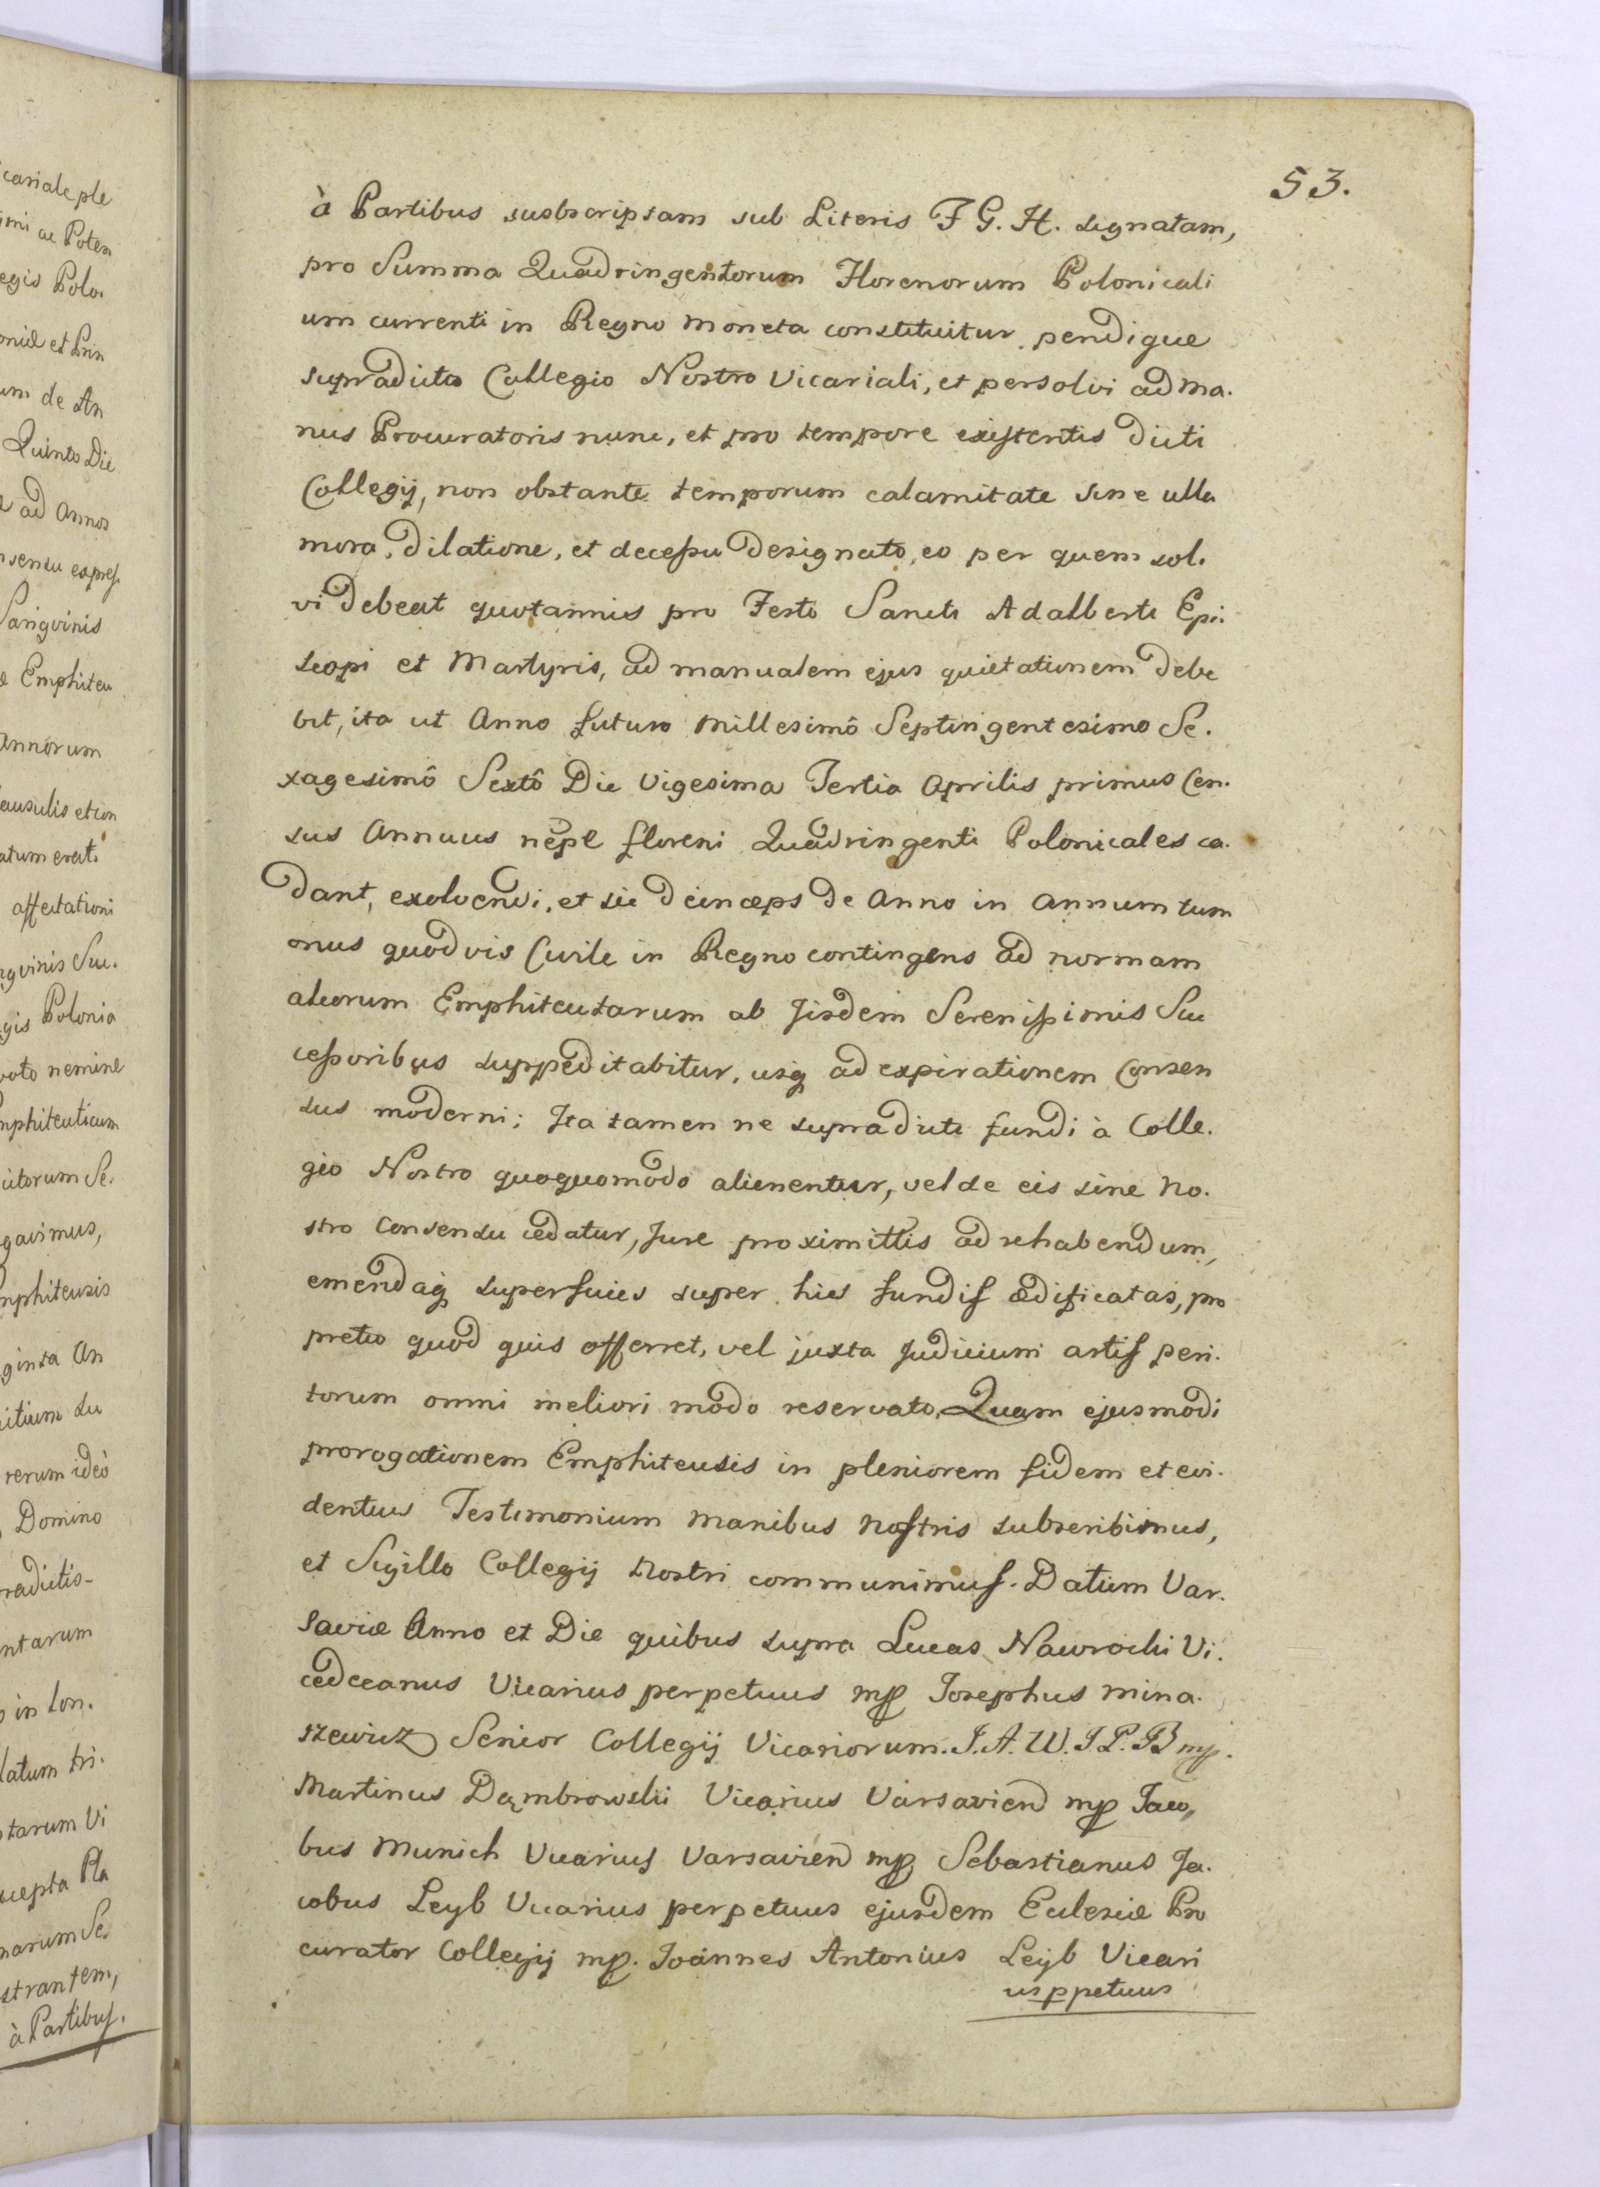 53.
à Partibus susbscriptam sub Literis F G. H. signatam,
pro Summa Quadringentorum Florenorum Polonicali
um currenti in Regno moneta constituitur pendique
supradicto Collegio Nostro Vicariali, et persolvi ad ma.
nus Procuratoris nunc, et pro tempore existentis dicti
Collegij, non obstante temporum calamitate sine ulla
mora, dilatione, et decessu designato, eo per quem sol.
vi debeat quotannis pro Festo Sancti Adalberti Epi.
scopi et Martyris, ad manualem ejus quietationem debe
bit, ita ut Anno futuro Millesimô Septingentesimo Se.
xagesimô Sextô Die Vigesima Tertia Aprilis primus Cen.
sus Annuus nepe floreni Quadringenti Polonicales ca.
dant, exolvendi, et sic deinceps de Anno in Annum tum
onus quodvis Civile in Regno contingens ad normam
aliorum Emphiteutarum ab Jisdem Serenissimis Suc
cessoribus suppeditabitur, usq ad expirationem Consen
sus moderni; Ita tamen ne supradicti fundi à Colle.
gio Nostro quoquomodo alienentur, vel de eis sine No.
stro Consensu cedatur, Jure proximittis ad rehabendum,
emendaq superficies super his fundis ædificatas, pro
pretio quod quis offerret, vel juxta Judicium artis peri.
torum omni meliori modo reservato, Quam ejusmodi
prorogationem Emphiteusis in pleniorem fidem et evi.
dentius Testimonium manibus nostris subscribimus,
et Sigillo Collegij Nostri communimus. Datum Var.
saviæ Anno et Die quibus supra Lucas Nawrocki Vi.
cedceanus Vicarius perpetuus mp Josephus Mina.
szewicz Senior Collegij Vicariorum. J. A. W. J P. B mp.
Martinus Dąmbrowski Vicarius Varsavien mp Jaco,
bus Munich Vicarius Varsavien mp Sebastianus Ja.
cobus Leyb Vicarius perpetuus ejusdem Eclesiæ Pro
curator Collegij mp. Joánnes Antonius Leyb Vicari
us ppetuus